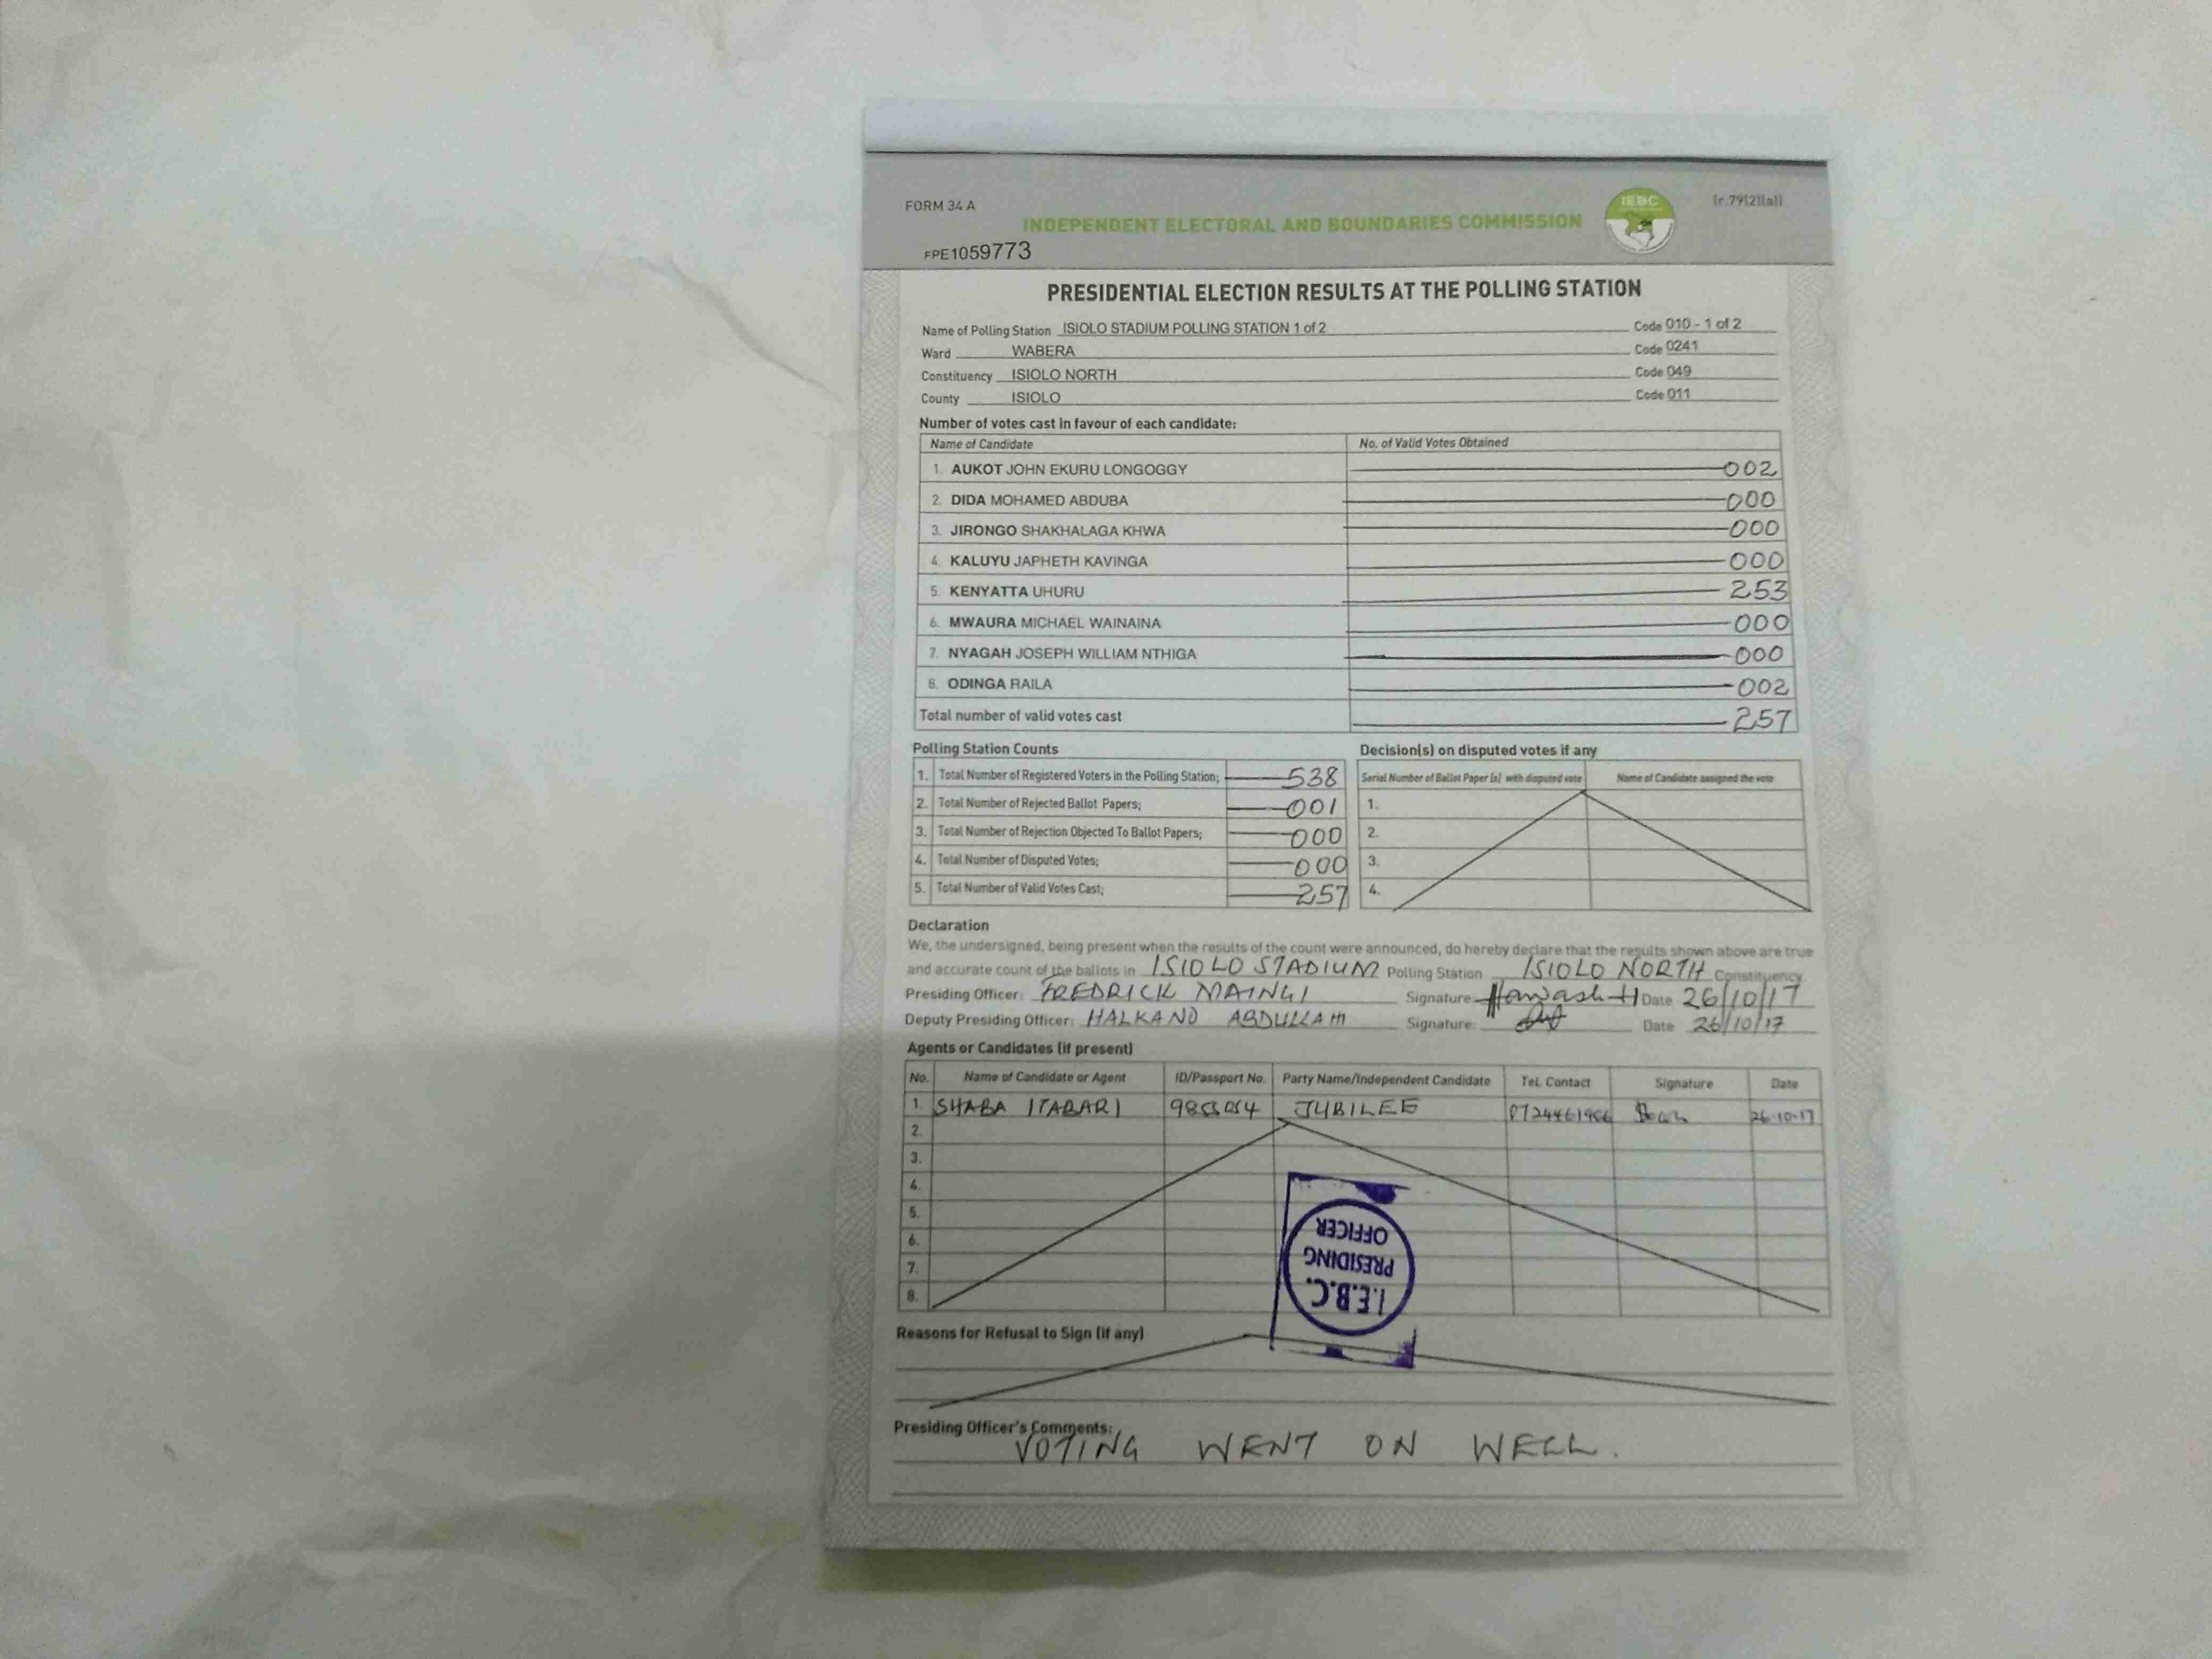 FORM 34 A
IEBC
(r.79(2)(a))
INDEPENDENT ELECTORAL AND BOUNDARIES COMMISSION
FPE1059773
PRESIDENTIAL ELECTION RESULTS AT THE POLLING STATION
Name of Polling Station ISIOLO STADIUM POLLING STATION 1 of 2 Code 010 - 1 of 2
Ward WABERA Code 0241
Constituency ISIOLO NORTH Code 049
County ISIOLO Code 011
Number of votes cast in favour of each candidate:
Name of Candidate No. of Valid Votes Obtained
1. AUKOT JOHN EKURU LONGOGGY 002
2. DIDA MOHAMED ABDUBA 000
3. JIRONGO SHAKHALAGA KHWA 000
4. KALUYU JAPHETH KAVINGA 000
5. KENYATTA UHURU 253
6. MWAURA MICHAEL WAINAINA 000
7. NYAGAH JOSEPH WILLIAM NTHIGA 000
8. ODINGA RAILA 002
Total number of valid votes cast 257
Polling Station Counts
1. Total Number of Registered Voters in the Polling Station; 538
2. Total Number of Rejected Ballot Papers; 001
3. Total Number of Rejection Objected To Ballot Papers; 000
4. Total Number of Disputed Votes; 000
5. Total Number of Valid Votes Cast; 257
Decision(s) on disputed votes if any
Serial Number of Ballot Paper (s) with disputed vote Name of Candidate assigned the vote
1.
2.
3.
4.
Declaration
We, the undersigned, being present when the results of the count were announced, do hereby declare that the results shown above are true
and accurate count of the ballots in ISIOLO STADIUM Polling Station ISIOLO NORTH Constituency
Presiding Officer: FREDRICK MAINGI Signature: Date 26/10/17
Deputy Presiding Officer: HALKANO ABDULLAHI Signature: Date 26/10/17
Agents or Candidates (if present)
No. Name of Candidate or Agent ID/Passport No. Party Name/Independent Candidate Tel. Contact Signature Date
1. SHABA ITABARI JUBILEE 26-10-17
2.
3.
4.
5.
6.
7.
8.
I.E.B.C.
PRESIDING
OFFICER
Reasons for Refusal to Sign (if any)
Presiding Officer's Comments:
VOTING WENT ON WELL.